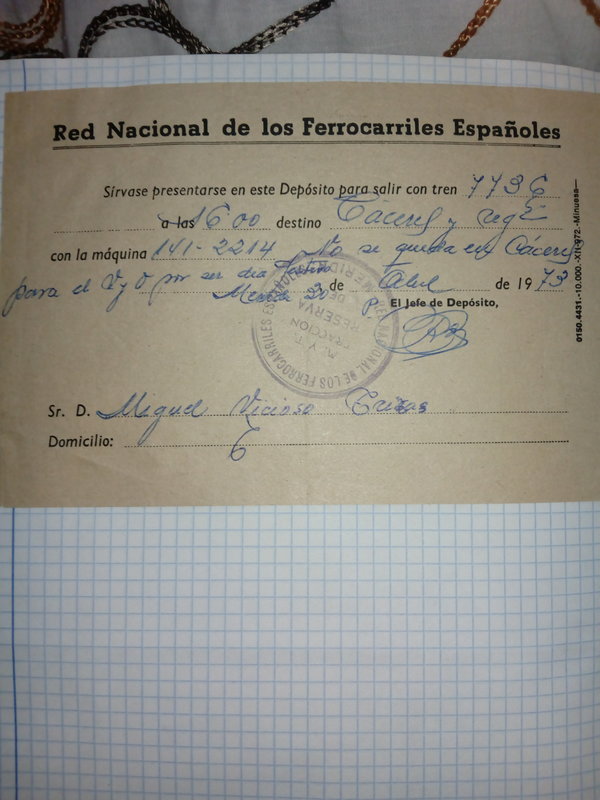 Red Nacional de los Ferrocarriles Españoles
Sírvase presentarse en este Depósito para salir con tren 7736
a las 16 00 destino Cáceres y regº
con la máquina 141-2214 No se queda en Cáceres
para el V y O por ser dia festivo
Merida 30 de Abril de 1973
P. El Jefe de Depósito,
Sr. D. Miguel Vicioso
Domicilio: 6
0150.4431.-10.000.-XII-972.-Minuesa
RED NACIONAL DE LOS FERROCARRILES ESPAÑOLES
M. Y T.
TRACCION
RESERVA
DE
MERIDA